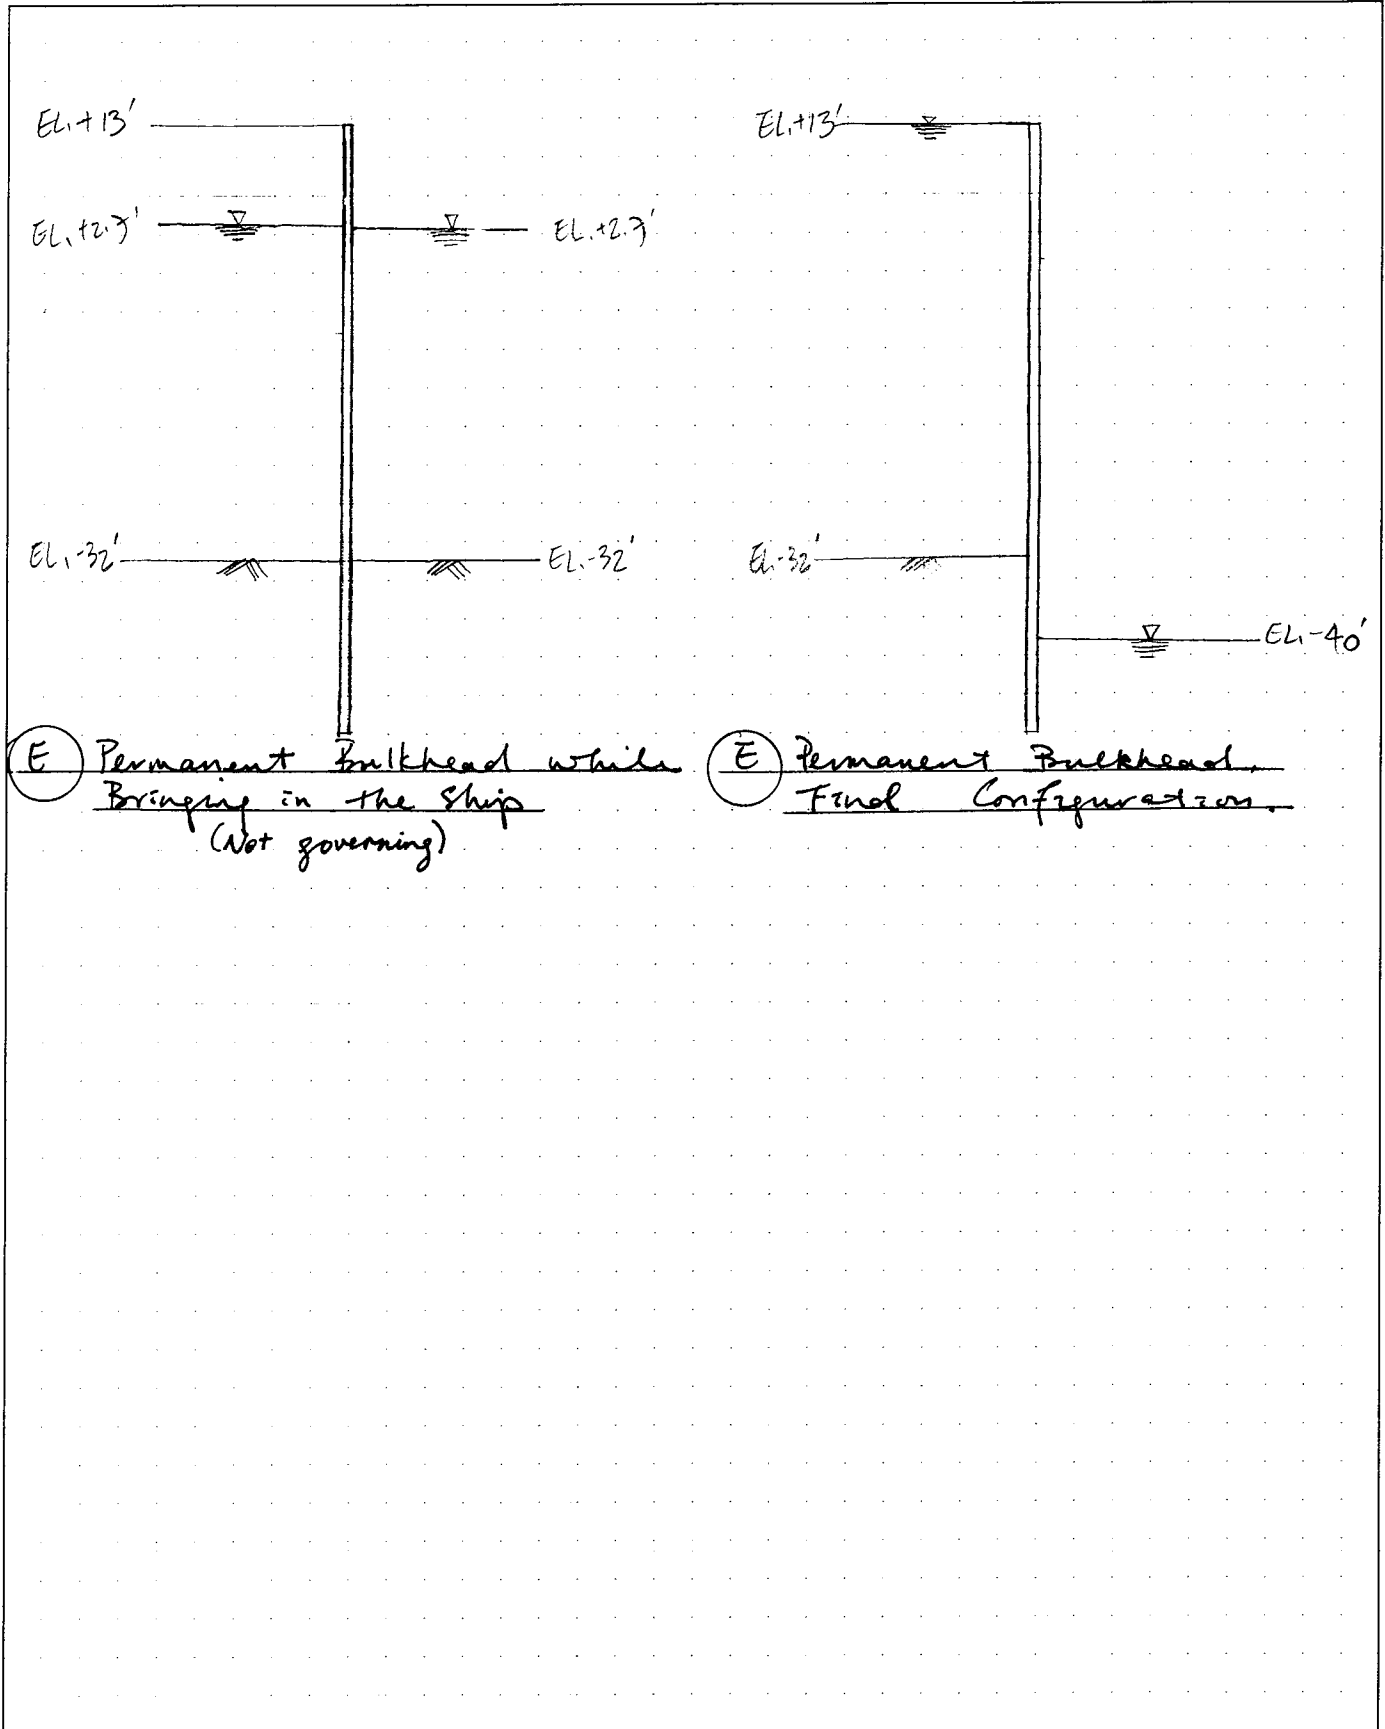 EL.+13'
EL.+2.7'
EL.+2.7'
EL.-32'
EL.-32'
E Permanent Bulkhead while
Bringing in the Ship
(Not governing)
EL.+13'
EL.-32'
EL.-40'
E Permanent Bulkhead.
Final Configuration.